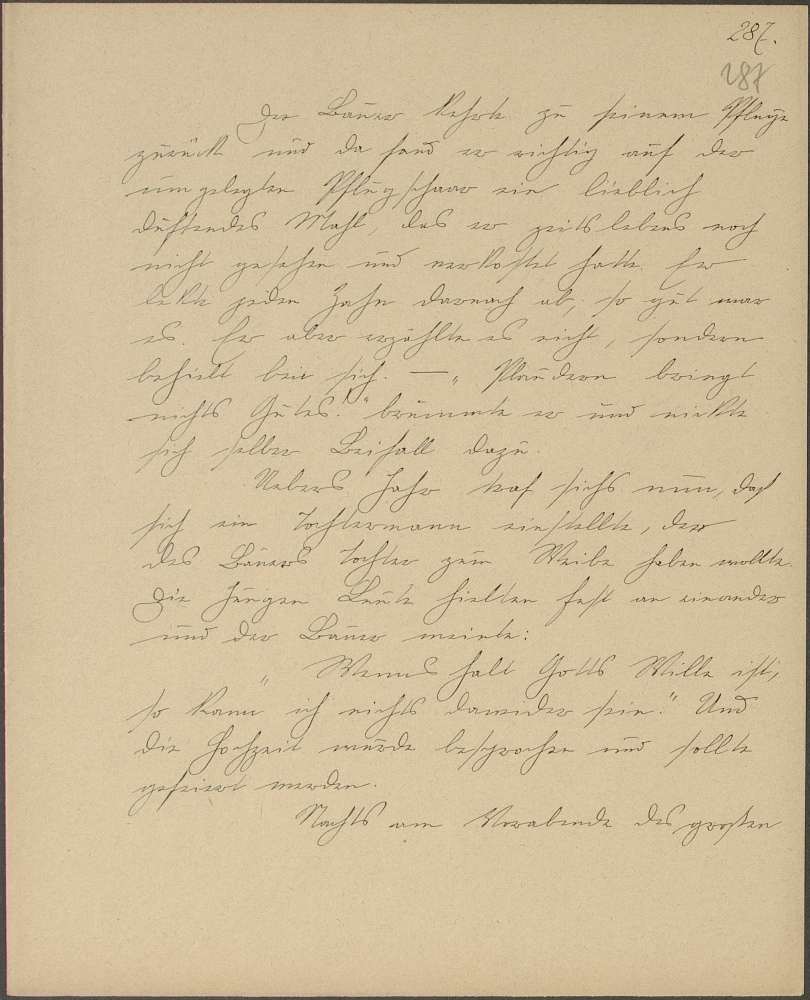 287.
287
Der Bauer kehrte zu seinem Pfluge
zurück und da fand er richtig auf der
umgelegten Pflugschaar ein lieblich
duftendes Mahl, das er zeitslebens noch
nicht gesehen und verkostet hatte. Er
lekte jeden Zahn darnach ab, so gut war
es. Er aber erzählte es nicht, sondern
behielt bei sich. — „Plaudern bringt
nichts Gutes!" brummte er und nickte
sich selber Beifall dazu.
Uebers Jahr traf sichs nun, daß
sich ein Tochtermann einstellte, der
des Bauers Tochter zum Weibe haben wollte.
Die jungen Leute hielten fest an einander
und der Bauer meinte:
„Wenns halt Gotts Wille ist,
so kann ich nichts dawider sein." Und
die Hochzeit wurde besprochen und sollte
gefeiert werden.
Nachts am Vorabende des großen